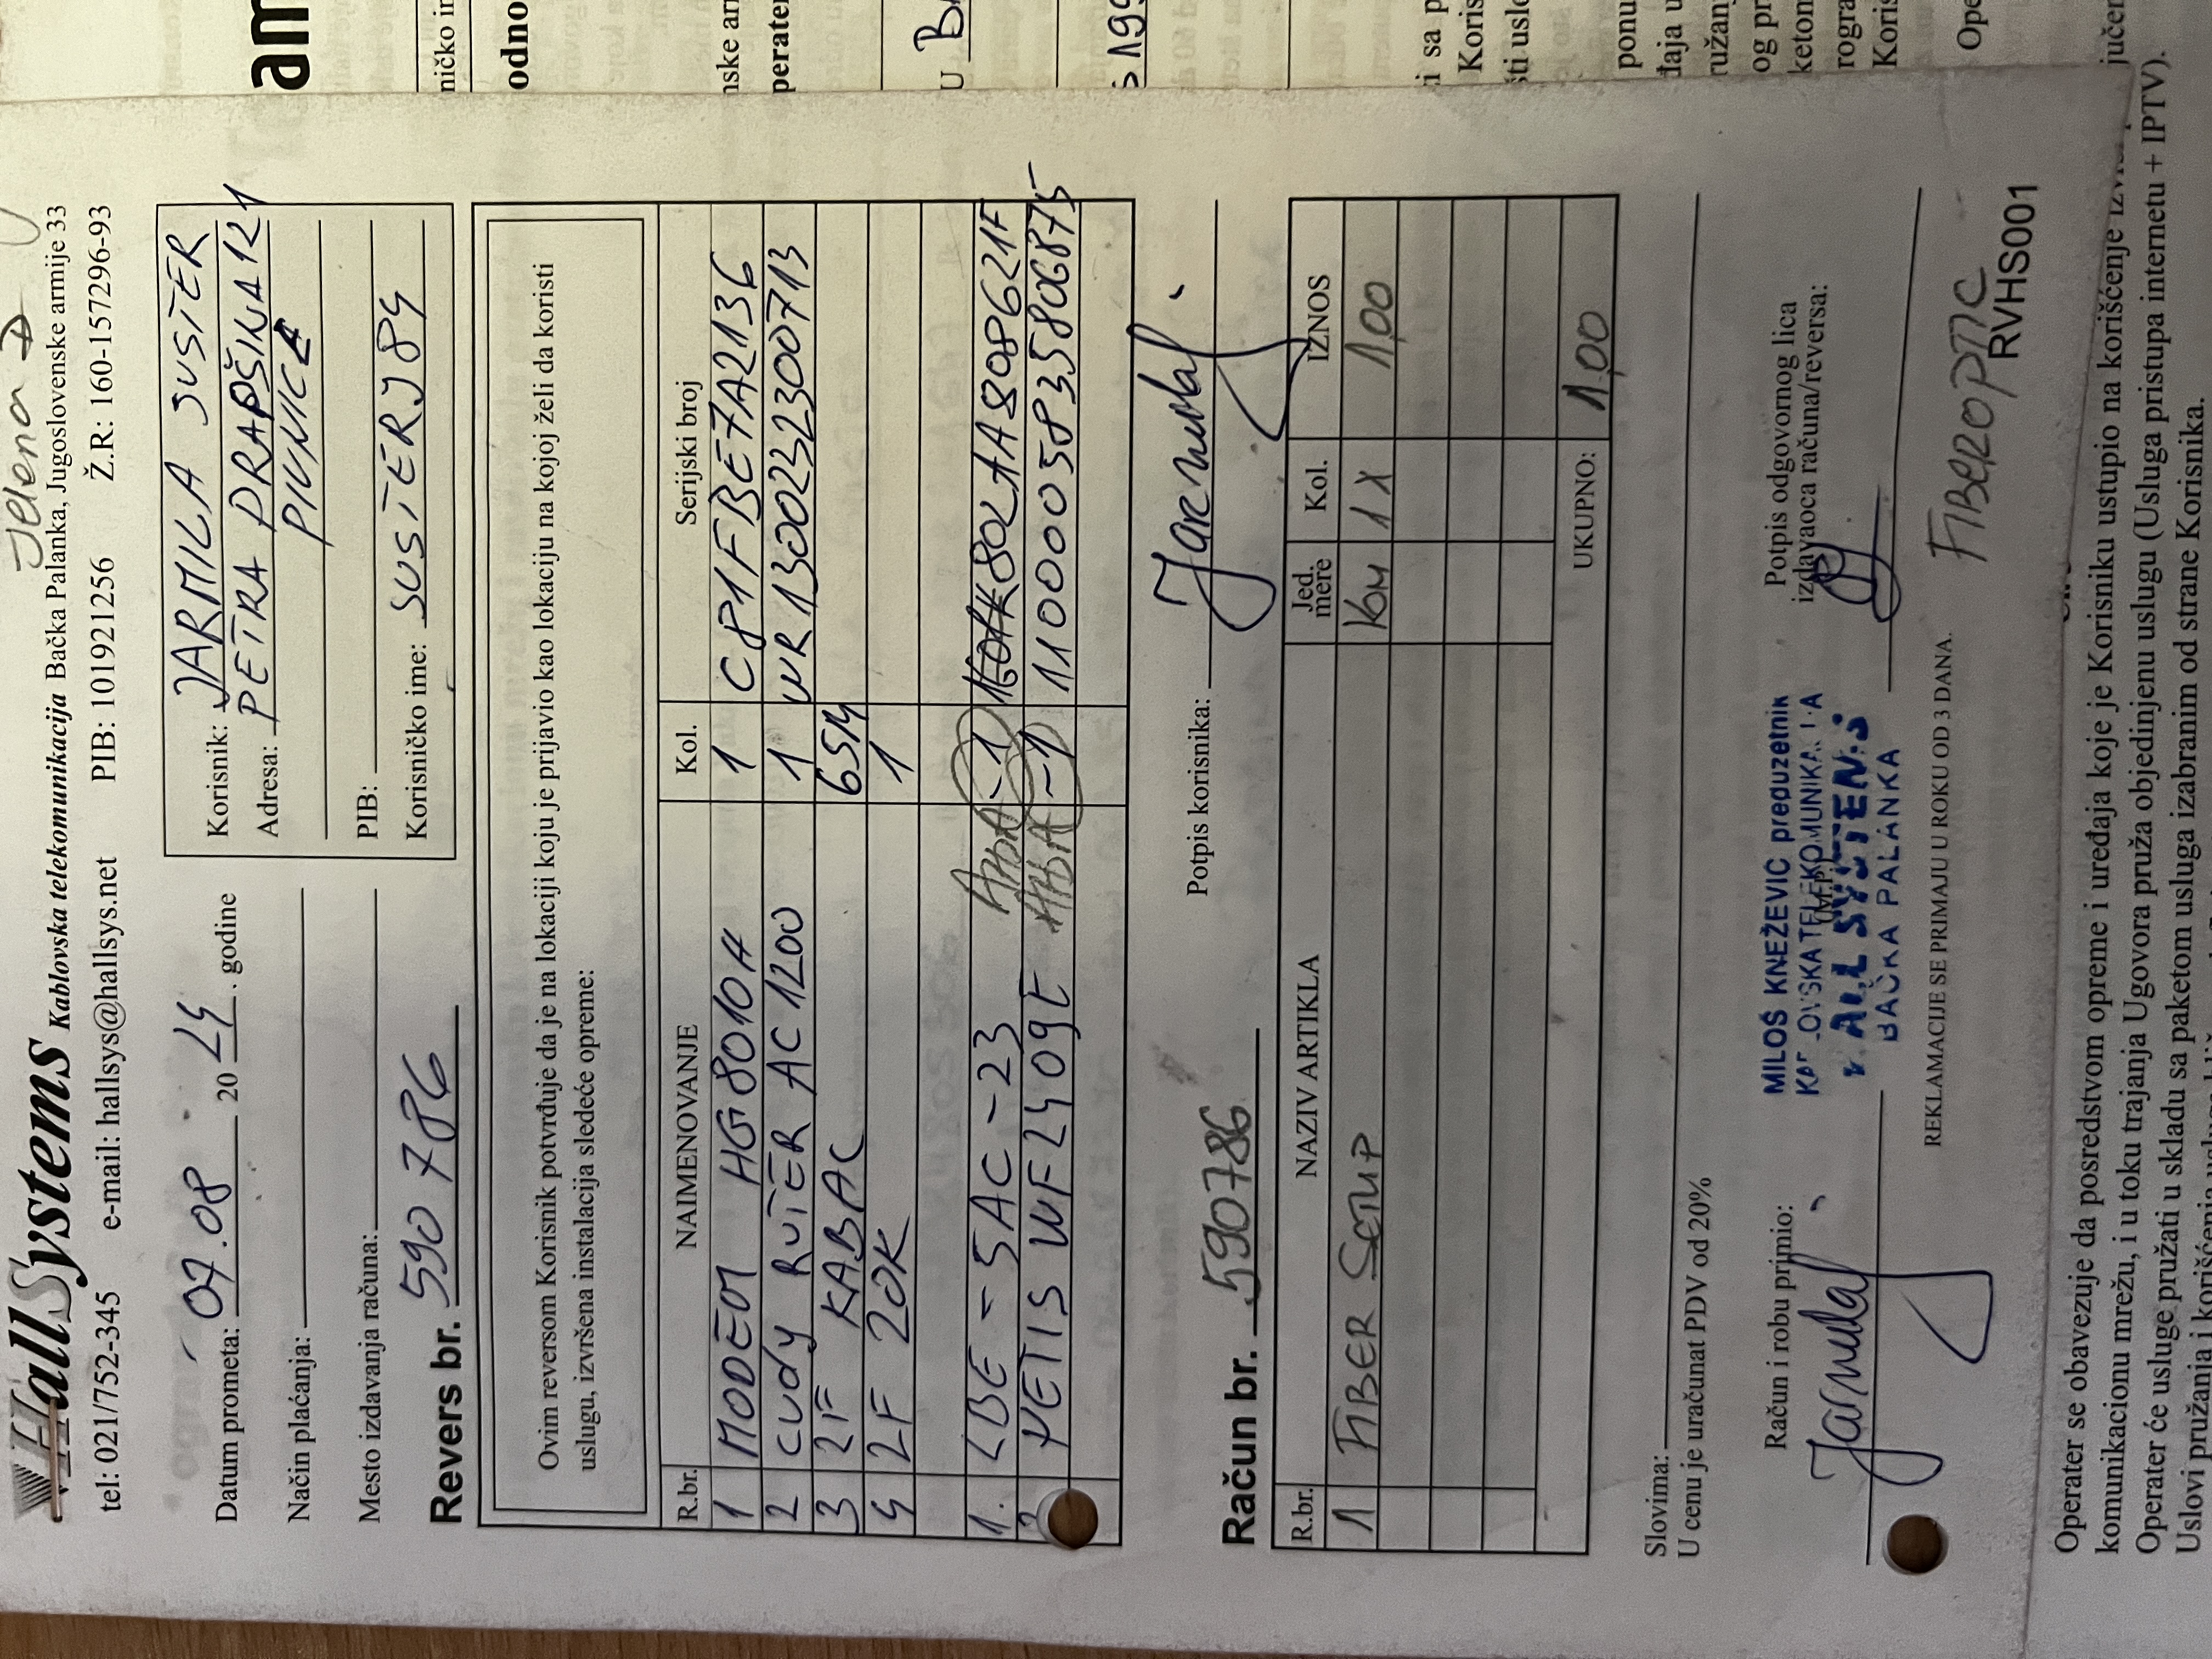 Jelena D
HallSystems Kablovska telekomunikacija Bačka Palanka, Jugoslovenske armije 33
tel: 021/752-345 e-mail: hallsys@hallsys.net PIB: 101921256 Ž.R: 160-157296-93
Datum prometa: 07.08 20 24. godine
Način plaćanja:
Mesto izdavanja računa:
Revers br. 590786
Korisnik: JARMILA SUSTER
Adresa: PETRA DRAPŠINA 121
PIVNICE
PIB:
Korisničko ime: SUSTERJ84
Ovim reversom Korisnik potvrđuje da je na lokaciji koju je prijavio kao lokaciju na kojoj želi da koristi
uslugu, izvršena instalacija sledeće opreme:
R.br. NAIMENOVANJE Kol. Serijski broj
1 MODEM HG8010H 1 C81FBE7A2136
2 CUDY RUTER AC1200 1 WR1300232300713
3 2F KABAL 65M
4 2F ZOK 1
1. LBE-5AC-23 -1 802AA808621F
2 NETIS WF2409E -1 110005835806875
Potpis korisnika: Jarmila
Račun br. 590786
R.br. NAZIV ARTIKLA Jed. mere Kol. IZNOS
1 FIBER SETUP KOM 1X 1,00
UKUPNO: 1,00
Slovima:
U cenu je uračunat PDV od 20%
Račun i robu primio:
Jarmila
MILOŠ KNEŽEVIĆ preduzetnik
BAČKA PALANKA
Potpis odgovornog lica
izdavaoca računa/reversa:
REKLAMACIJE SE PRIMAJU U ROKU OD 3 DANA.
FIBEROPTIC
RVHS001
Operater se obavezuje da posredstvom opreme i uređaja koje je Korisniku ustupio na korišćenje
komunikacionu mrežu, i u toku trajanja Ugovora pruža objedinjenu uslugu (Usluga pristupa internetu + IPTV).
Operater će usluge pružati u skladu sa paketom usluga izabranim od strane Korisnika.
Uslovi pružanja i korišćenja
am
ničko
odno
perater
U B
i sa p
Koris
ti uslo
ponu